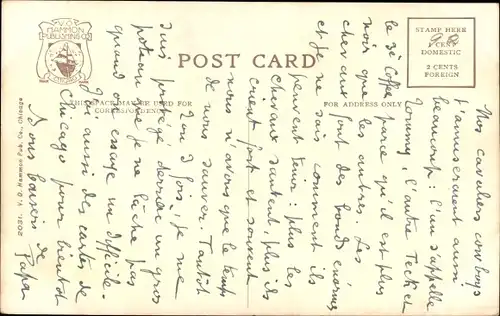 V.O. HAMMON PUBLISHING CO.
CHICAGO
POST CARD
STAMP HERE
1 CENT
DOMESTIC
2 CENTS
FOREIGN
THIS SPACE MAY BE USED FOR
CORRESPONDENCE
FOR ADDRESS ONLY
2031. V. O. HAMMON PUB. CO., CHICAGO
Nos cavaliers cow boys
t'amuseraient aussi
beaucoup : l'un s'appelle
Tommy, l'autre Teck et
le 3e Coffee parce qu'il est plus
noir que les autres. Les
chevaux font des bonds énormes
et je ne sais comment ils
peuvent tenir : plus les
chevaux sautent, plus ils
crient fort et souvent
nous n'avons que le temps
de nous sauver. Tantôt
j'ou 3 fois, je me
suis protégé derrière un gros
poteau que je ne lâche pas
quand on essaye un difficile.
J'ai aussi des cartes de
Chicago pour bientôt
Bons baisers de
Papa